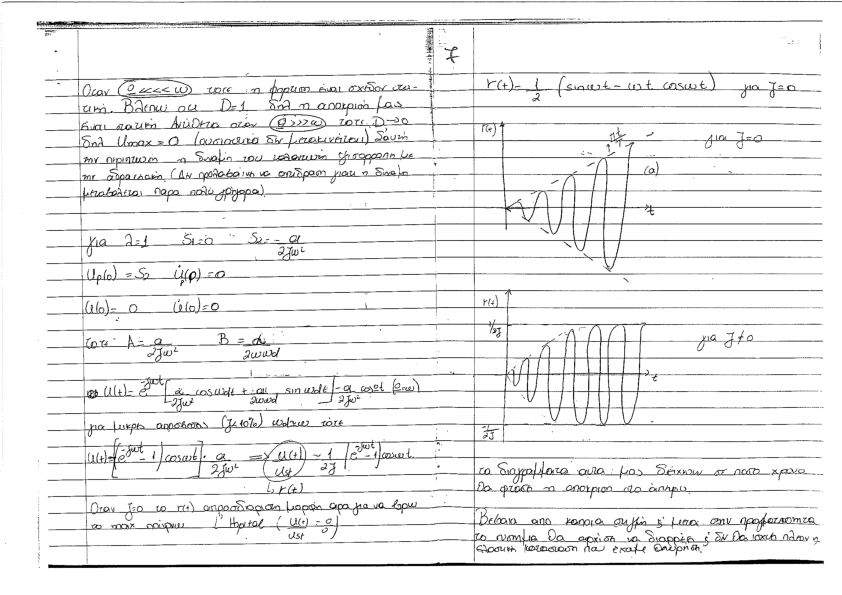 7
Οταν (Ω<<<<ω) τοτε η φορτιση ειναι σχεδον στα-
τικη. Βλεπω οτι D=1 δηλ η αποκριση μας
ειναι στατικη Αντιθετα οταν (Ω>>>ω) τοτε D→0
δηλ Umax=0 (ουσιαστικα δεν μετακινειται) σ'αυτη
την περιπτωση η δυναμη του ταλαντωτη εξισορροπη με
την αδρανειακη. (Δεν προλαβαινει να επιδραση γιατι η δυναμη
μεταβαλεται παρα πολυ γρηγορα)
για λ=1 S1=0 S2=-a/2ζω²
Up(0)=S2 U̇p(0)=0
U(0)=0 U̇(0)=0
τοτε A=a/2ζω² B=a/2ωωd
U(t)=e^-ζωt [a/2ζω² cosωdt + a/2ωωd sinωdt] - a/2ζω² cosΩt (Ω=ω)
για μικρες αποσβεσεις (ζ<10%) τοτε
U(t)=[e^-ζωt - 1] cosωt · a/2ζω² => U(t)/Ust ~ 1/2ζ (e^-ζωt - 1) cosωt
↳ r(t)
Οταν ζ=0 το r(t) απροσδιοριστη μορφη αρα για να βρω
το max παιρνω L'Hopital (U(t)/Ust = 0/0)
r(t)=1/2 (sinωt - ωt cosωt) για ζ=0
r(t)
πt/T
για ζ=0
(a)
t
r(t)
1/2ζ
για ζ≠0
t
-1/2ζ
τα διαγραμματα αυτα μας δειχνουν σε ποσο χρονο
θα φτασει η αποκριση στο απειρο.
Βεβαια απο καποια στιγμη ς μετα στην πραγματικοτητα
το συστημα θα αρχιση να διαρρεει ς δεν θα ισχυει πλεον η
ελαστικη κατασταση που εχαμε θεωρηση.